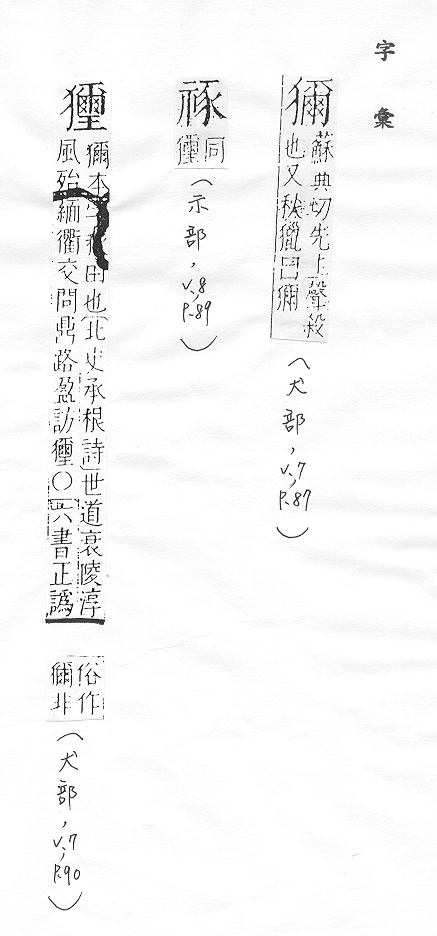 字彙
獮
蘇典切先上聲殺
也又秋獵曰獮
(犬部,v.7,p.87)
同
(示部,v.8,p.89)
獮本字秋田也北史承根詩世道衰陵淳
風殆緬衢交問鼎路盈訪○六書正譌
俗作
獮非
(犬部,v.7,p.90)